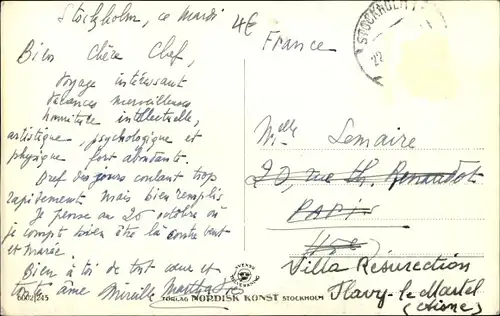 Stockholm, ce mardi
4€
Bien Chère Chef,
Voyage intéressant
Vacances merveilleuses
nourriture intellectuelle,
artistique, psychologique et
physique fort abondante.
Bref des jours coulant trop
rapidement mais bien remplis
Je pense au 26 octobre où
je compt bien être là contre vent
et marée
Bien à toi de tout cœur et
toute âme Mireille
France
STOCKHOLM
22
Melle Lemaire
20, rue Th. Renaudot
PARIS
Villa Résurection
Flavy-le Martel
(Aisne)
6002/245
FÖRLAG NORDISK KONST STOCKHOLM